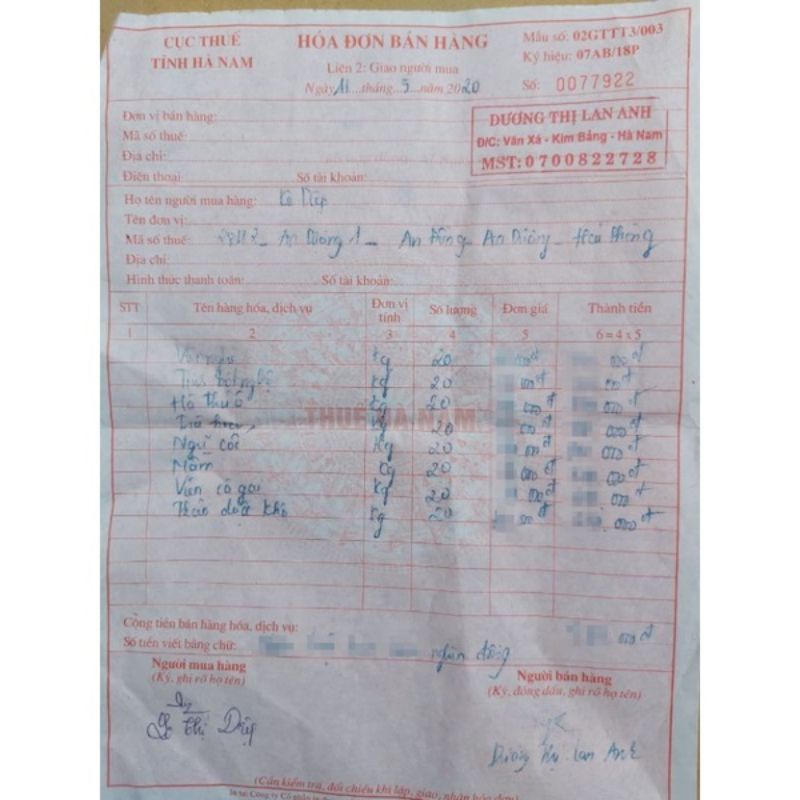 CỤC THUẾ
TỈNH HÀ NAM
HÓA ĐƠN BÁN HÀNG
Liên 2: Giao người mua
Ngày 11 tháng 5 năm 2020
Mẫu số: 02GTTT3/003
Ký hiệu: 07AB/18P
Số: 0077922
Đơn vị bán hàng:
Mã số thuế:
Địa chỉ:
Điện thoại: Số tài khoản:
DƯƠNG THỊ LAN ANH
Đ/C: Văn Xá - Kim Bảng - Hà Nam
MST: 0700822728
Họ tên người mua hàng:
Tên đơn vị:
Mã số thuế: An Dương 1 - An Đồng - An Dương - Hải Phòng
Địa chỉ:
Hình thức thanh toán: Số tài khoản:
STT Tên hàng hóa, dịch vụ Đơn vị tính Số lượng Đơn giá Thành tiền
1 2 3 4 5 6 = 4 x 5
kg 20 000đ 000đ
Tinh bột nghệ kg 20 000đ 000đ
Hà thủ ô kg 20 000đ 000đ
Trà kg 20 000đ 000đ
Ngũ cốc kg 20 000đ 000đ
Mầm kg 20 000đ 000đ
Viên kg 20 000đ 000đ
Thảo dược khô kg 20 000đ 000đ
THUẾ HÀ NAM
Cộng tiền bán hàng hóa, dịch vụ: 000đ
Số tiền viết bằng chữ: ngàn đồng
Người mua hàng
(Ký, ghi rõ họ tên)
Người bán hàng
(Ký, đóng dấu, ghi rõ họ tên)
Thị Diệp
Dương Thị Lan Anh
(Cần kiểm tra, đối chiếu khi lập, giao, nhận hóa đơn)